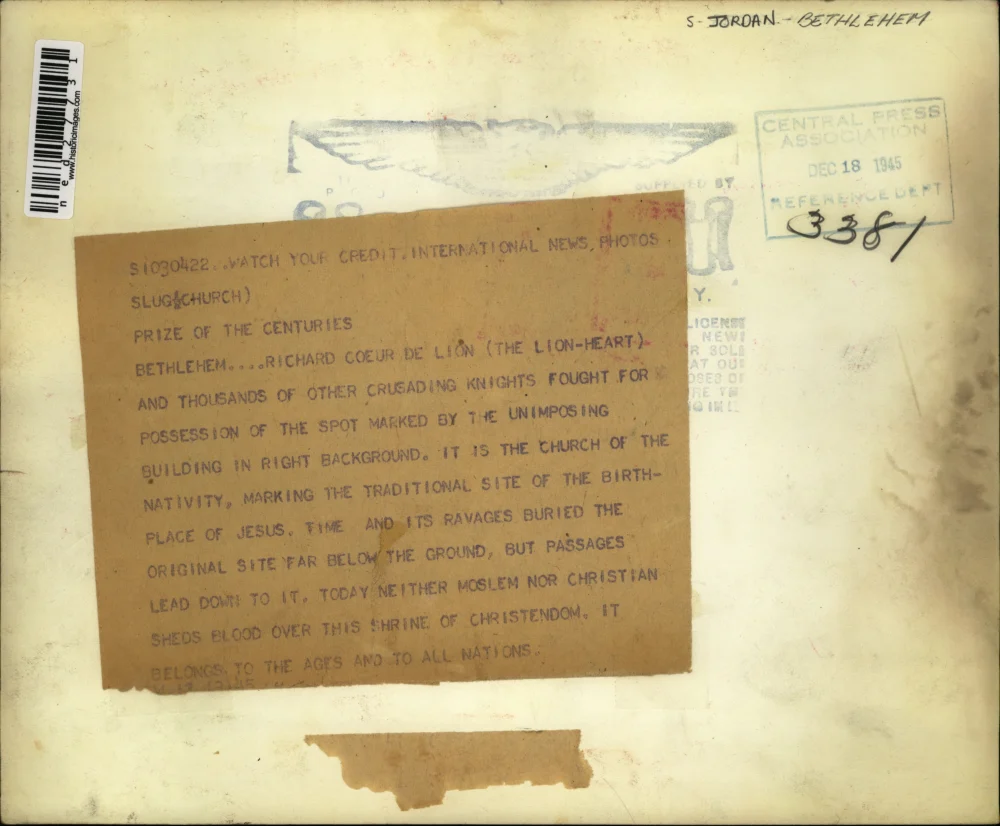 S-JORDAN.-BETHLEHEM
ned27731
www.historicimages.com
CENTRAL PRESS
ASSOCIATION
DEC 18 1945
REFERENCE DEPT
3381
SUPPLIED BY
Y.
LICENSE
NEWS
R SOLE
AT OUR
OSES OF
HE
G IN
SI030422..WATCH YOUR CREDIT.INTERNATIONAL NEWS PHOTOS
SLUG(CHURCH)
PRIZE OF THE CENTURIES
BETHLEHEM....RICHARD COEUR DE LION (THE LION-HEART)
AND THOUSANDS OF OTHER CRUSADING KNIGHTS FOUGHT FOR
POSSESSION OF THE SPOT MARKED BY THE UNIMPOSING
BUILDING IN RIGHT BACKGROUND. IT IS THE CHURCH OF THE
NATIVITY, MARKING THE TRADITIONAL SITE OF THE BIRTH-
PLACE OF JESUS. TIME AND ITS RAVAGES BURIED THE
ORIGINAL SITE FAR BELOW THE GROUND, BUT PASSAGES
LEAD DOWN TO IT. TODAY NEITHER MOSLEM NOR CHRISTIAN
SHEDS BLOOD OVER THIS SHRINE OF CHRISTENDOM. IT
BELONGS TO THE AGES AND TO ALL NATIONS.